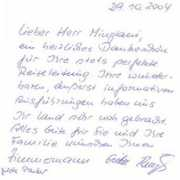 29.10.2004
Lieber Herr Mingkani,
ein herzliches Dankeschön
für Ihre stets perfekte
Reiseleitung. Ihre wunder-
baren, äußerst informativen
Ausführungen haben uns
Ihr Land sehr nah gebracht.
Alles Gute für Sie und Ihre
Familie wünschen Ihnen